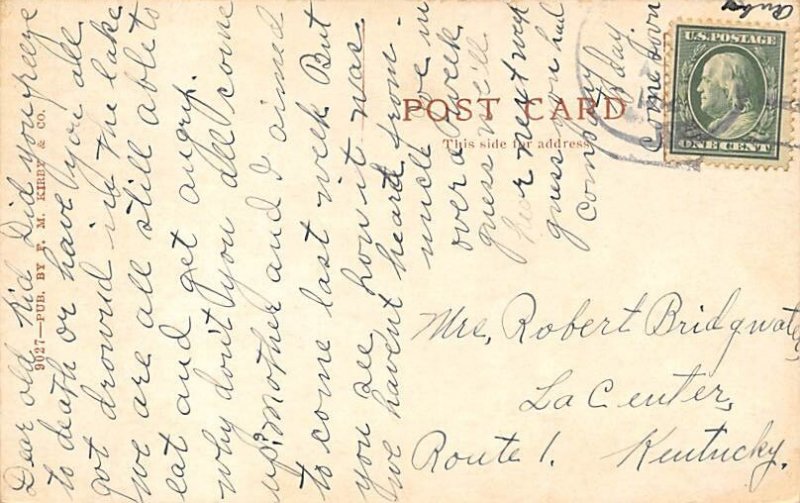 Dear old kid Did you freeze
to death or have you all
got drownd in the lake
we are all still able to
eat and get angry.
why don't you all come
up? Mother and I aimed
to come last week But
you see how it was.
we havent heard from
uncle Joe in
over a week
guess we'll
hear next week
guess you had
company
day.
come down
POST CARD
This side for address
U.S. POSTAGE
ONE CENT
Mrs. Robert Bridgwater
La Center,
Route 1. Kentucky.
9027—PUB. BY F. M. KIRBY & CO.